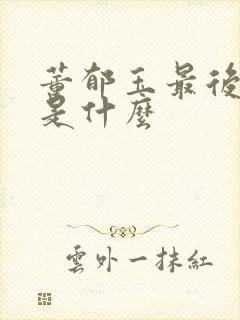 董郁玉最後
是什麼
雲外一抹紅